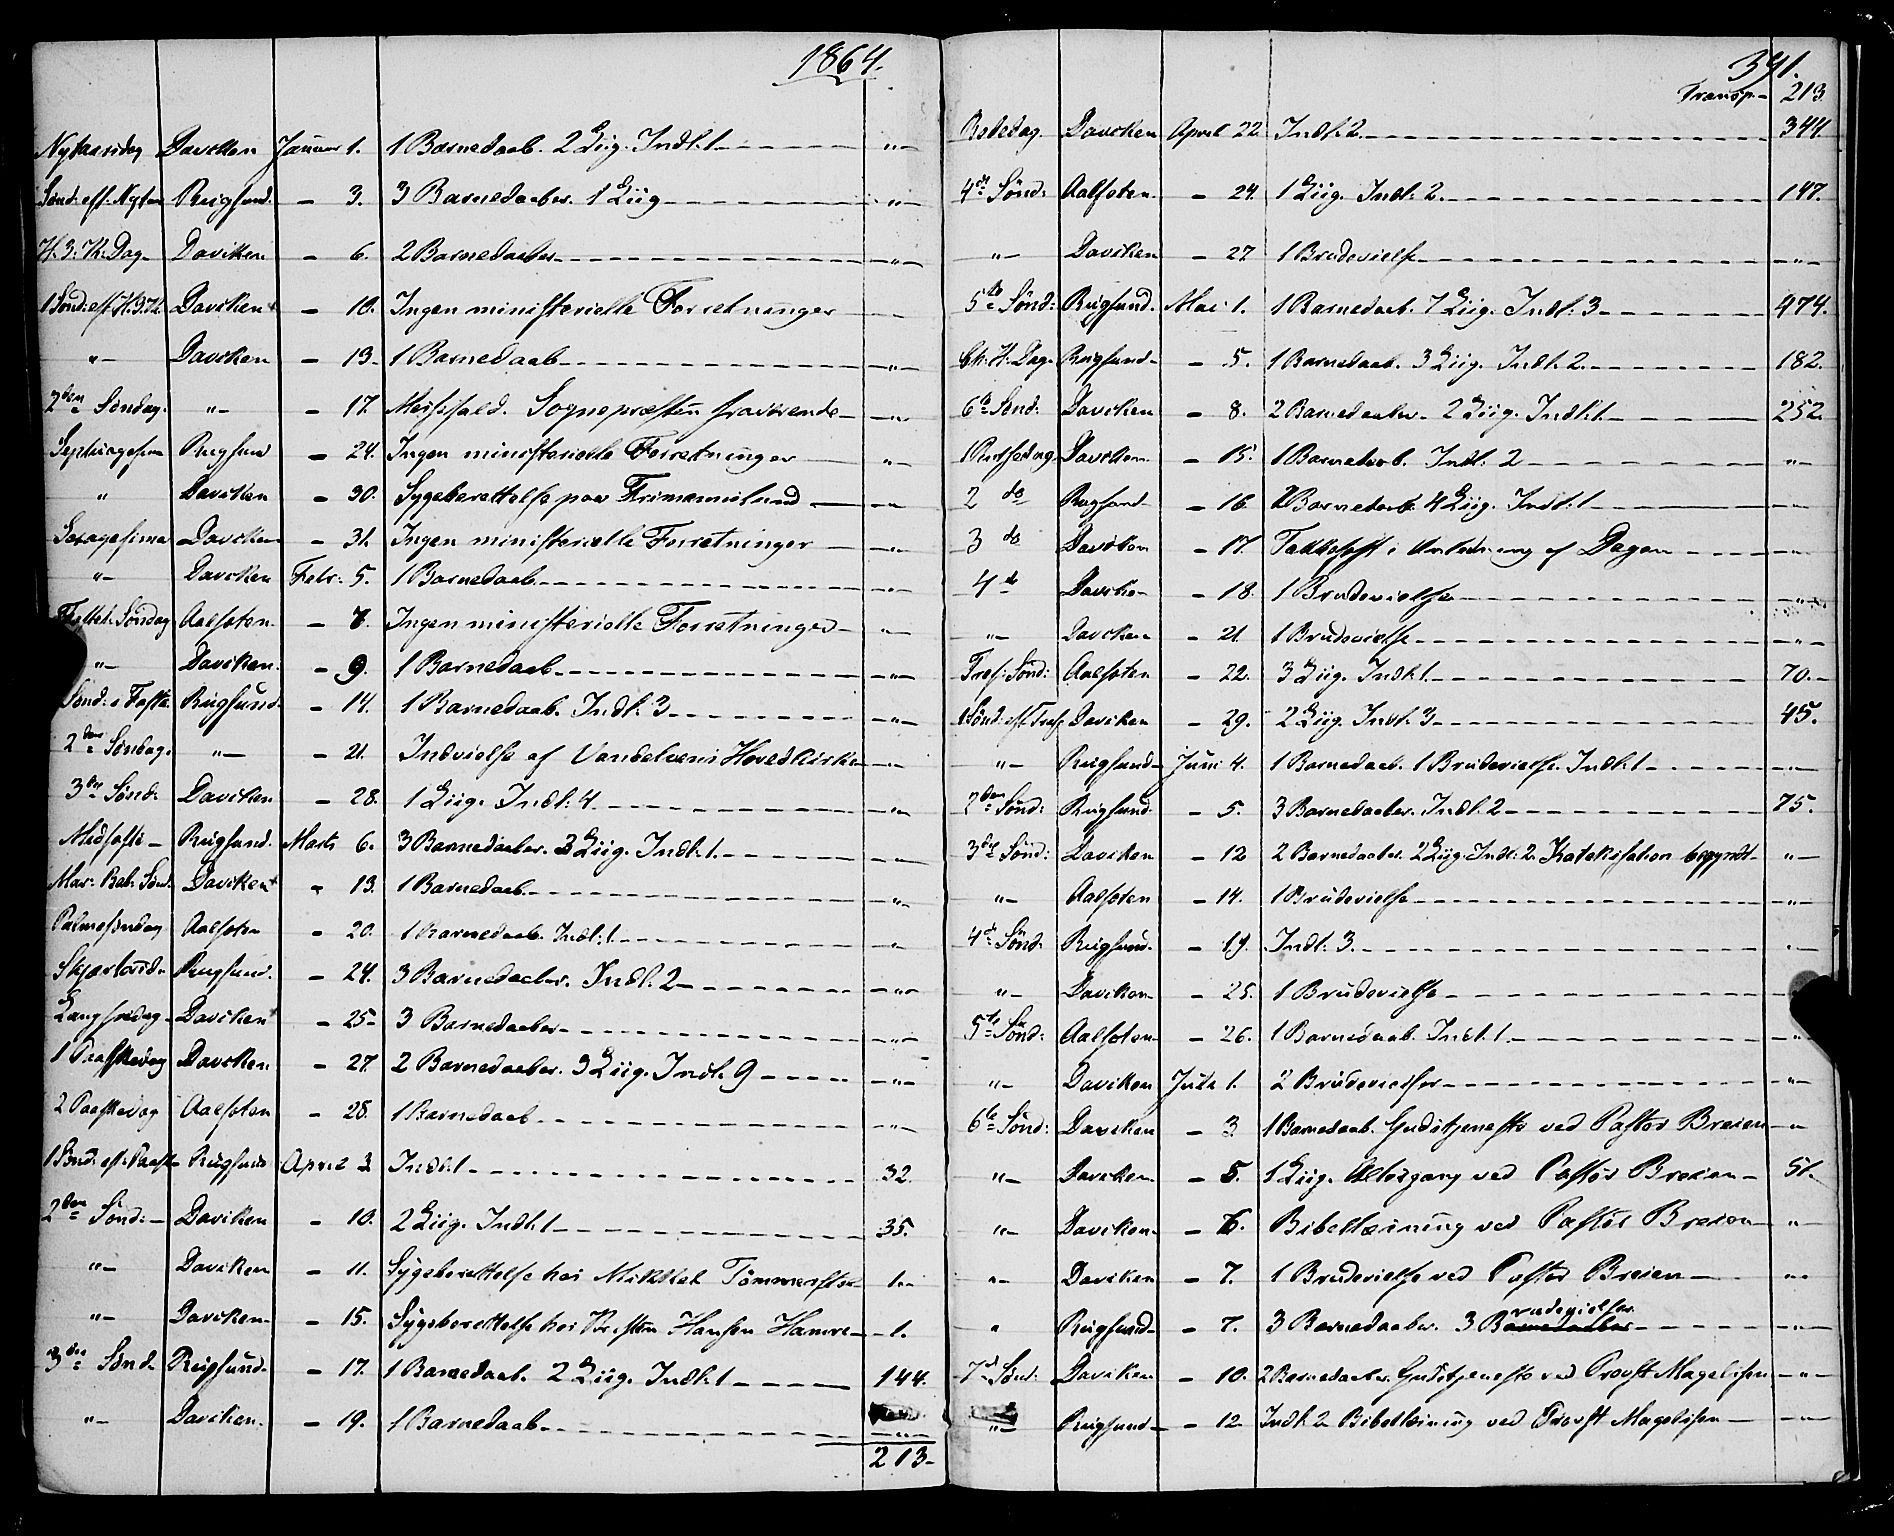 1864.
Nytaarsdag Daviken Januar 1. 1 Barnedaab. 2 Liig. Indl: 1 - „ -
Sønd: eft. Nytaar Rugsund. - 3. 3 Barnedaaber. 1 Liig - „ -
H. 3. K. Dag - Daviken - 6. 2 Barnedaaber - „ -
1 Sønd: eft. H. 3. K. Daviken - 10. Ingen ministerielle Forretninger
„ - Daviken - 13. 1 Barnedaab - „ -
2den Søndag. „ - - 17. Messefald. Sognepræsten fraværende - „ -
Septuagesima Rugsund - 24. Ingen ministerielle Forretninger - „ -
„ Daviken - 30. Sygeberettelse paa Frimannslund - „ -
Sexagesima Daviken - 31. Ingen ministerielle Forretninger - „ -
„ - Daviken Febr: 5. 1 Barnedaab - „ -
Søndag Aalfoten - 7. Ingen ministerielle Forretninger - „ -
„ - Daviken. - 9. 1 Barnedaab - „ -
Sønd: i Faste Rugsund. - 14. 1 Barnedaab. Indl: 3 - „ -
2den Søndag. „ - - 21. Indvielse af Vandelvens Hovedkirke - „ -
3die Sønd: Daviken - 28. 1 Liig. Indl: 4 - „ -
Midfaste - Rugsund. Marts 6. 3 Barnedaaber. 3 Liig. Indl: 1. - „ -
Mar: Beb: Sønd: Daviken - 13. 1 Barnedaab - „ -
Palmesøndag Aalfoten - 20. 1 Barnedaab. Indl: 1 - „ -
Skjærtorsd. Rugsund. - 24. 3 Barnedaaber. Indl: 2 - „ -
Langfredag - Daviken - 25 - 3 Barnedaaber - „ -
1 Paaskedag Daviken - 27. 2 Barnedaaber. 3 Liig. Indl. 9 - „ -
2 Paaskedag Aalfoten - 28. 1 Barnedaab - „ -
1 Sønd: eft: Paaske Rugsund April 3. Indl: 1 - 32.
2den Sønd: - Daviken - 10. 2 Liig. Indl: 1 - 35.
„ - Daviken - 11. Sygeberettelse hos Mikkel - 1. -
„ - Daviken - 15. Sygeberettelse hos Hansen Hamre - 1.
3die Sønd. Rugsund. - 17. 1 Barnedaab. 2 Liig. Indl: 1 - 144.
„ - Daviken. - 19. 1 Barnedaab - „ -
213 -
391.
Transp. - 213
Bededag. Daviken April 22 Indl: 2. - 344
4de Sønd: Aalfoten. - 24. 1 Liig. Indl: 2. - 147.
„ - Daviken - 27 1 Brudevielse - „ -
5te Sønd: Rugsund. Mai 1. 1 Barnedaab. 7 Liig. Indl. 3 - 474.
Ch. H. Dag. Rugsund - - 5. 1 Barnedaab. 3 Liig. Indl. 2. - 182.
6te Sønd: Daviken - 8. 2 Barnedaaber. 2 Liig. Indl: 1 - 252
1 Pintsedag Daviken - 15. 1 Barnedaab. Indl: 2 - „ -
2 do Rugsund - 16. Barnedaab 4 Liig. Indl: 1 - „ -
3 do Daviken - 17. Takkefest i Anledning af Dagen - „ -
4 do Daviken - 18. 1 Brudevielse - „ -
„ - Daviken - 21 1 Brudevielse - „ -
Tref: Sønd: Aalfoten - 22. 3 Liig. Indl: 1 - 70. -
1 Sønd: eft. Tref: Daviken - 29. 2 Liig. Indl. 3 - 45.
„ - Rugsund - Juni 4. 1 Barnedaab. 1 Brudevielse. Indl: 1 - „ -
2den Sønd: Rugsund - 5. 3 Barnedaaber. Indl. 2 - 75.
3die Sønd: Daviken - 12 2 Barnedaaber. 2 Liig. Indl: 2. Katekisation begyndt - „ -
„ - Aalfoten - 14. 1 Brudevielse - „ -
4de Sønd. Rugsund. - 19. Indl: 3. - „ -
„ - Daviken - 25. 1 Brudevielse -
5te Sønd: Aalfoten - 26. 1 Barnedaab. Indl: 1. - „
„ - Daviken Juli 1. 2 Brudevielser - „ -
6te Sønd: Daviken - 3 1 Barnedaab. Gudstjeneste ved Pastor Breien - „
„ - Daviken - 5. 1 Liig. Altergang ved Pastor Breien - 51.
„ - Daviken - 6. Bibellæsning ved Pastor Breien - „ -
„ - Daviken - 7. 1 Brudevielse ved Pastor Breien - „ -
„ Rugsund - - 7. 3 Barnedaaber. 3 Brudevielser - „ -
7de Sønd: Daviken - 10. 2 Barnedaaber. Gudstjeneste ved Provst Magelssen - „ -
„ - Rugsund - - 12 Indl: 2 Bibellæsning ved Provst Magelssen - „ -